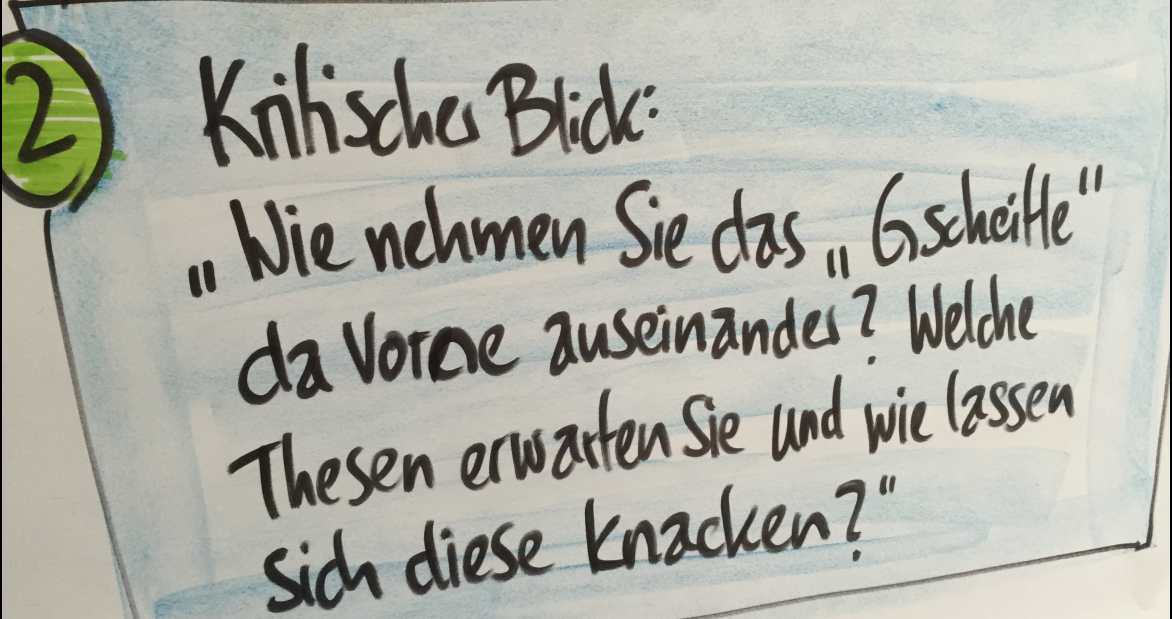 2
Kritischer Blick:
„Wie nehmen Sie das „Gscheitle“
da Vorne auseinander? Welche
Thesen erwarten Sie und wie lassen
sich diese knacken?“